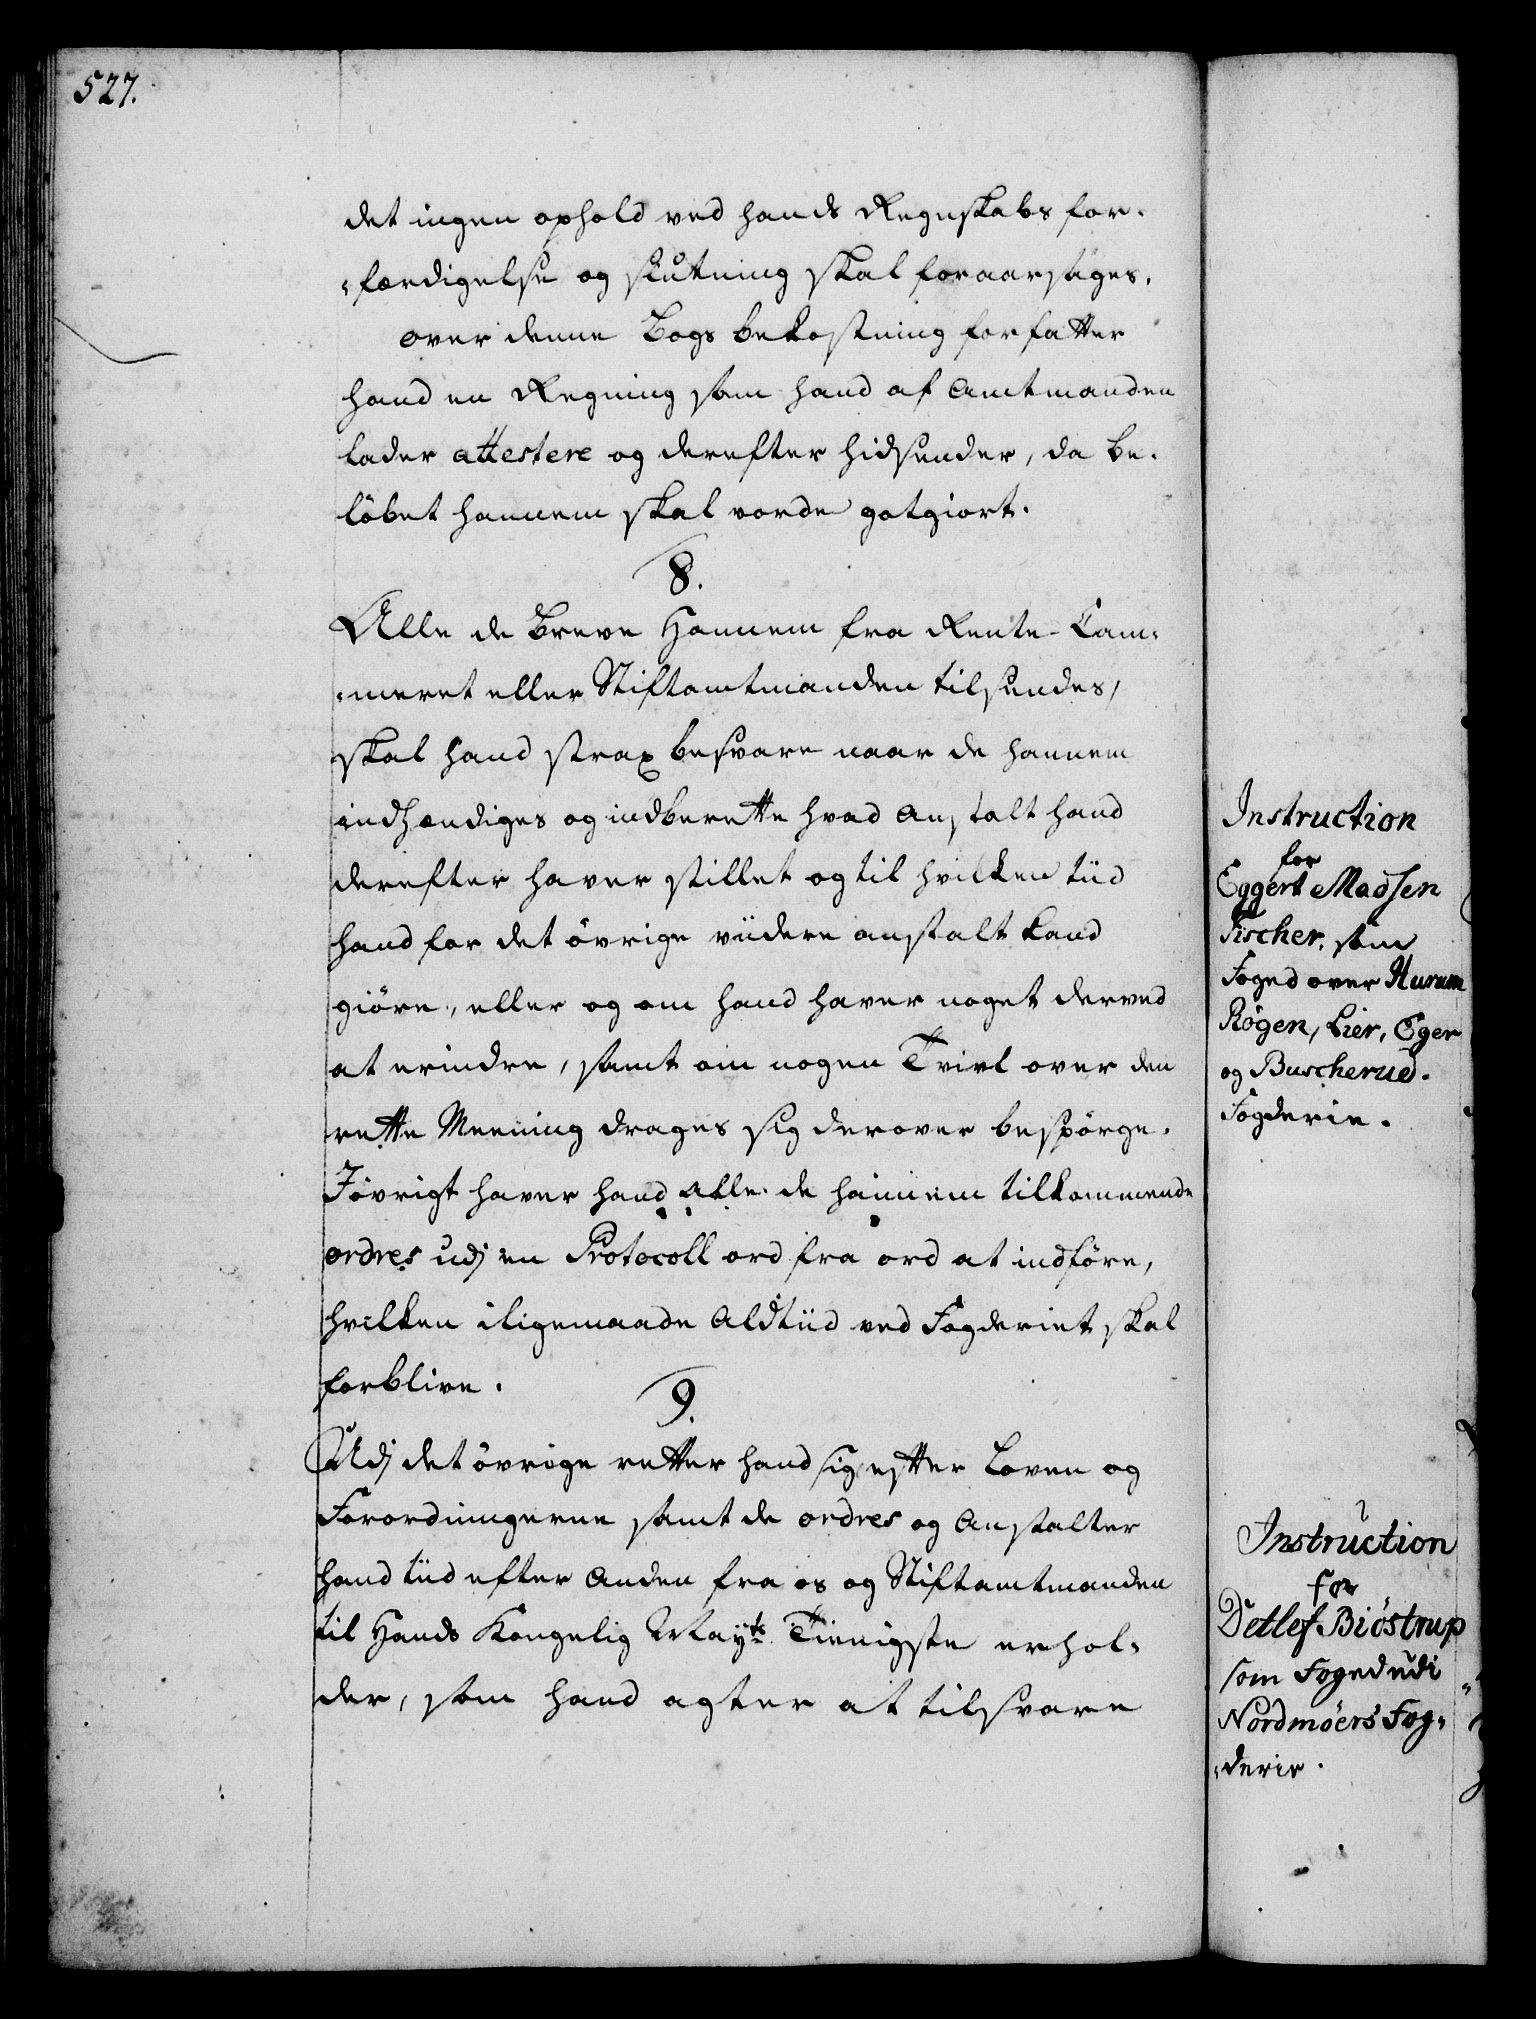 527.
det ingen ophold ved hands Regnskabs for-
-færdigelse og slutning skal foraarsages.
over denne Bogs bekostning forfatter
hand en Regning som hand af Amtmanden
lader attestere og derefter hidsender, da be-
löbet hannem skal vorde gotgiort.
8.
Alle de Breve Hannem fra Rente-Cam-
-meret eller Stiftamtmanden tilsendes,
skal hand strax besvare naar de hannem
indhændiges og indberette hvad Anstalt hand
derefter haver stillet og til hvilken tiid
hand for det övrige viidere anstalt kand
giöre, eller og om hand haver noget derved
at erindre, samt om nogen Tvivl over den
rette Meening drages sig derover bespörge.
J övrigt haver hand alle de hannem tilkommende
ordres udj en Protocoll ord fra ord at indföre,
hvilken iligemaade Aldtiid ved Fogderiet skal
forblive.
9.
Udj det övrige retter hand sig efter Loven og
Forordningerne samt de ordres og Anstalter
hand tiid efter Anden fra os og Stiftamtmanden
til Hands Kongelig Mayts Tienigste erhol-
der, som hand agter at tilsvare
Instruction
for
Eggert Madsen
Fischer, som
Foged over Hurum
Rögen, Lier, Eger
og Buscherud.
Fogderie.
Instruction
for
Detlef Biöstrup
som Foged udi
Nordmöers Fog-
-derie.